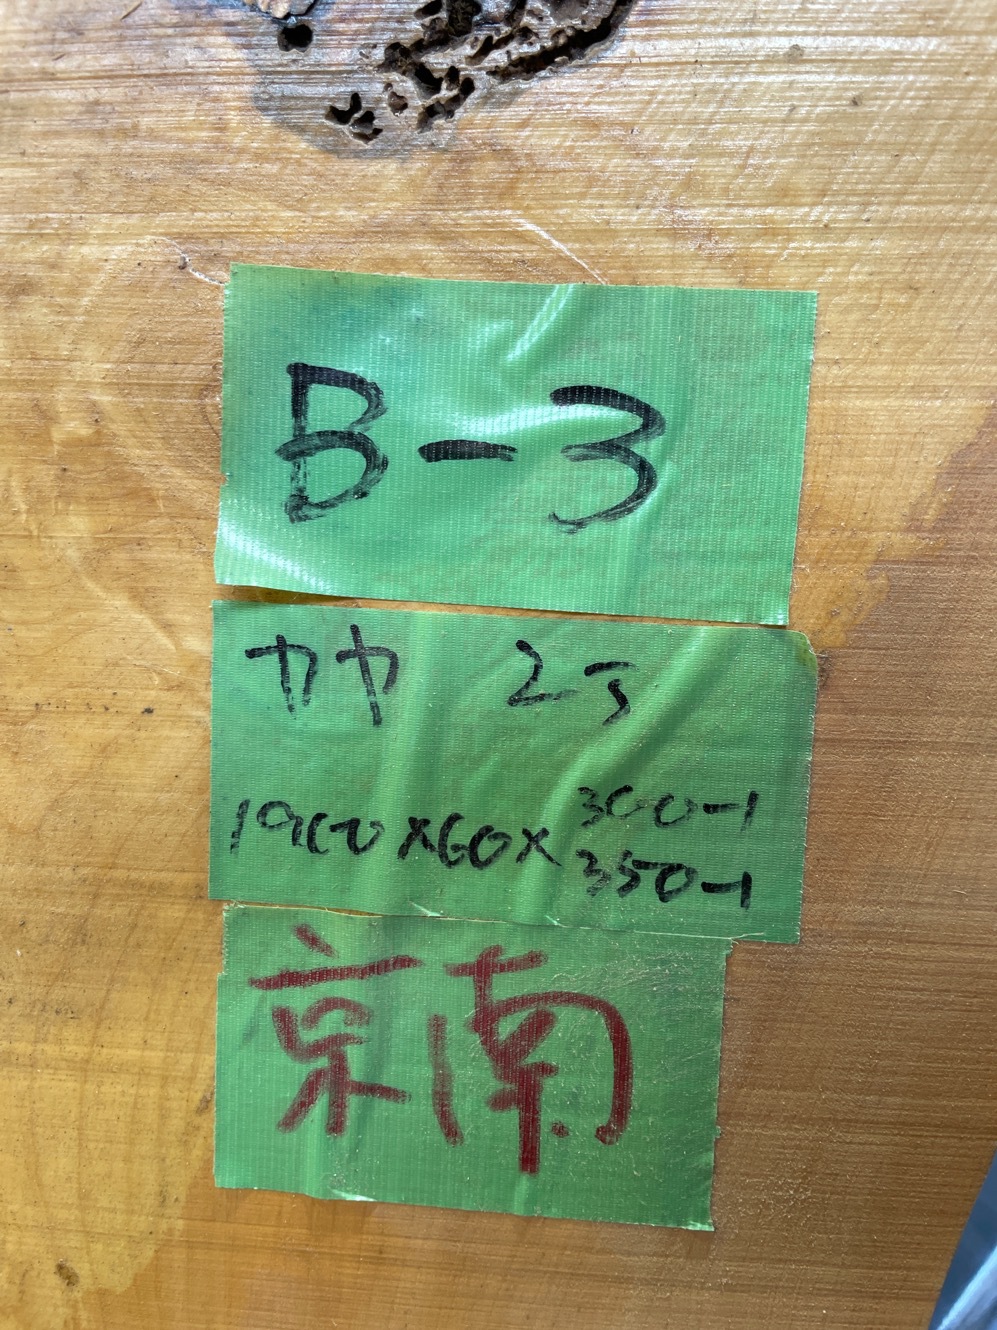 B-3
カヤ
1900×60×
300-1
350-1
京南